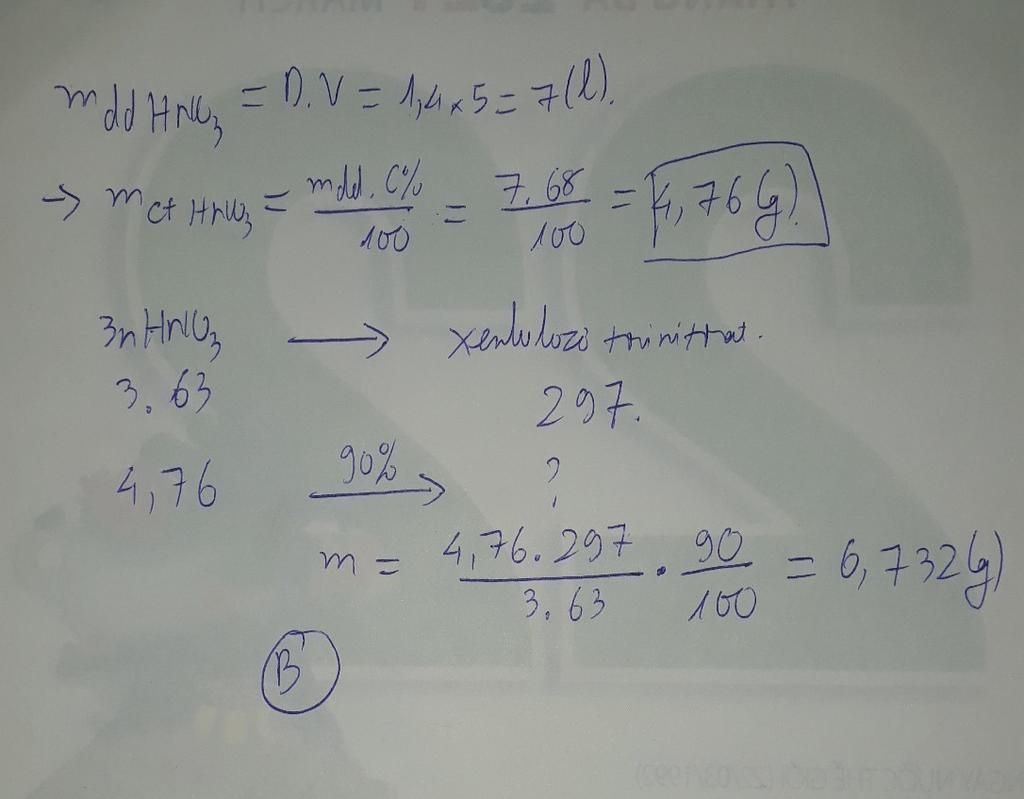 m dd HNO3 = D.V = 1,4 x 5 = 7 (l).
→ m ct HNO3 = mdd. C% / 100 = 7. 68 / 100 = 4,76 (g)
3n HNO3 → xenlulozơ trinitrat.
3. 63 297.
4,76 90% → ?
m = 4,76. 297 / 3. 63 . 90 / 100 = 6,732 (g)
B